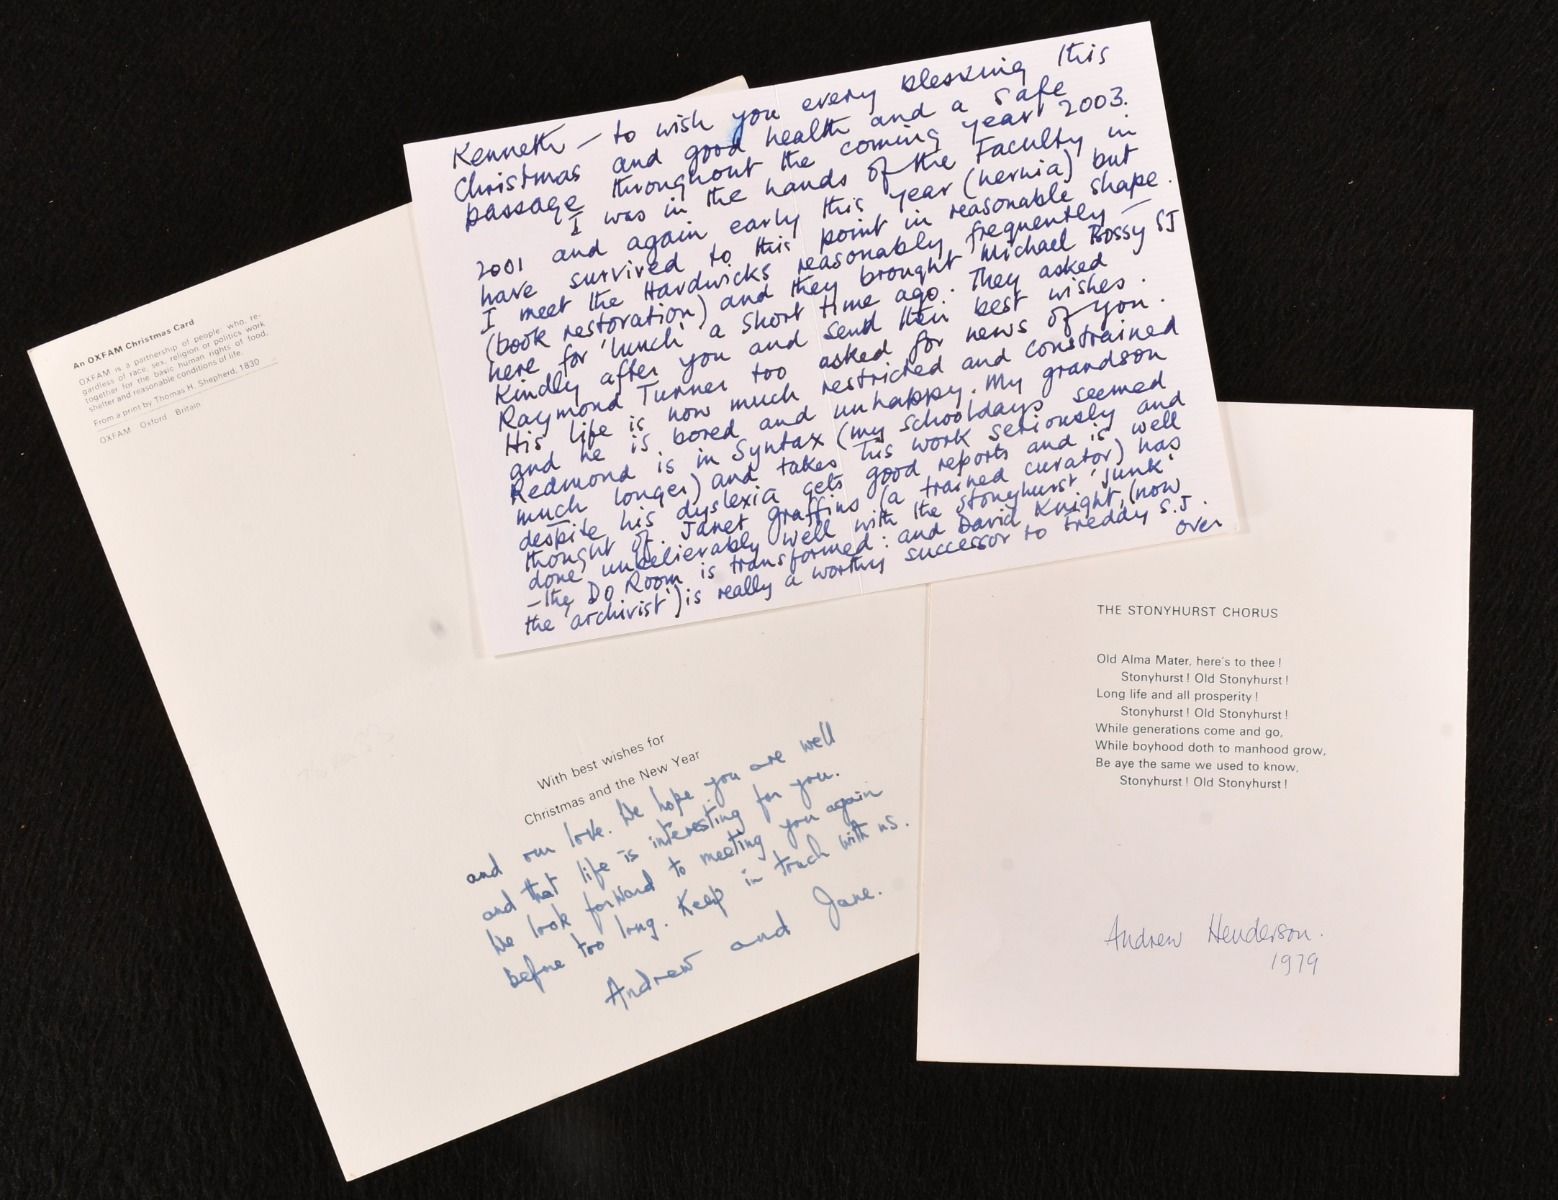 Kenneth — to wish you every blessing this
Christmas and good health and a safe
passage throughout the coming year 2003.
I was in the hands of the Faculty in
2001 and again early this year (hernia) but
have survived to this point in reasonable shape.
I meet the Hardwicks reasonably frequently —
(book restoration) and they brought Michael Bossy SJ
here for 'lunch' a short time ago. They asked
kindly after you and send their best wishes.
Raymond Turner too asked for news of you.
His life is now much restricted and constrained
and he is bored and unhappy. My grandson
Redmond is in Syntax (my schooldays seemed
much longer) and takes his work seriously and
despite his dyslexia gets good reports and is well
thought of. Janet Graffins (a trained curator) has
done unbelievably well with the Stonyhurst 'junk'
– the Do Room is transformed: and David Knight, (now
the archivist) is really a worthy successor to Freddy S.J.
over
An OXFAM Christmas Card
OXFAM is a partnership of people who, re-
gardless of race, sex, religion or politics work
together for the basic human rights of food,
shelter and reasonable conditions of life.
From a print by Thomas H. Shepherd, 1830
OXFAM Oxford Britain
With best wishes for
Christmas and the New Year
and our love. We hope you are well
and that life is interesting for you.
We look forward to meeting you again
before too long. Keep in touch with us.
Andrew and Jane.
THE STONYHURST CHORUS
Old Alma Mater, here's to thee!
Stonyhurst! Old Stonyhurst!
Long life and all prosperity!
Stonyhurst! Old Stonyhurst!
While generations come and go,
While boyhood doth to manhood grow,
Be aye the same we used to know,
Stonyhurst! Old Stonyhurst!
Andrew Henderson.
1979